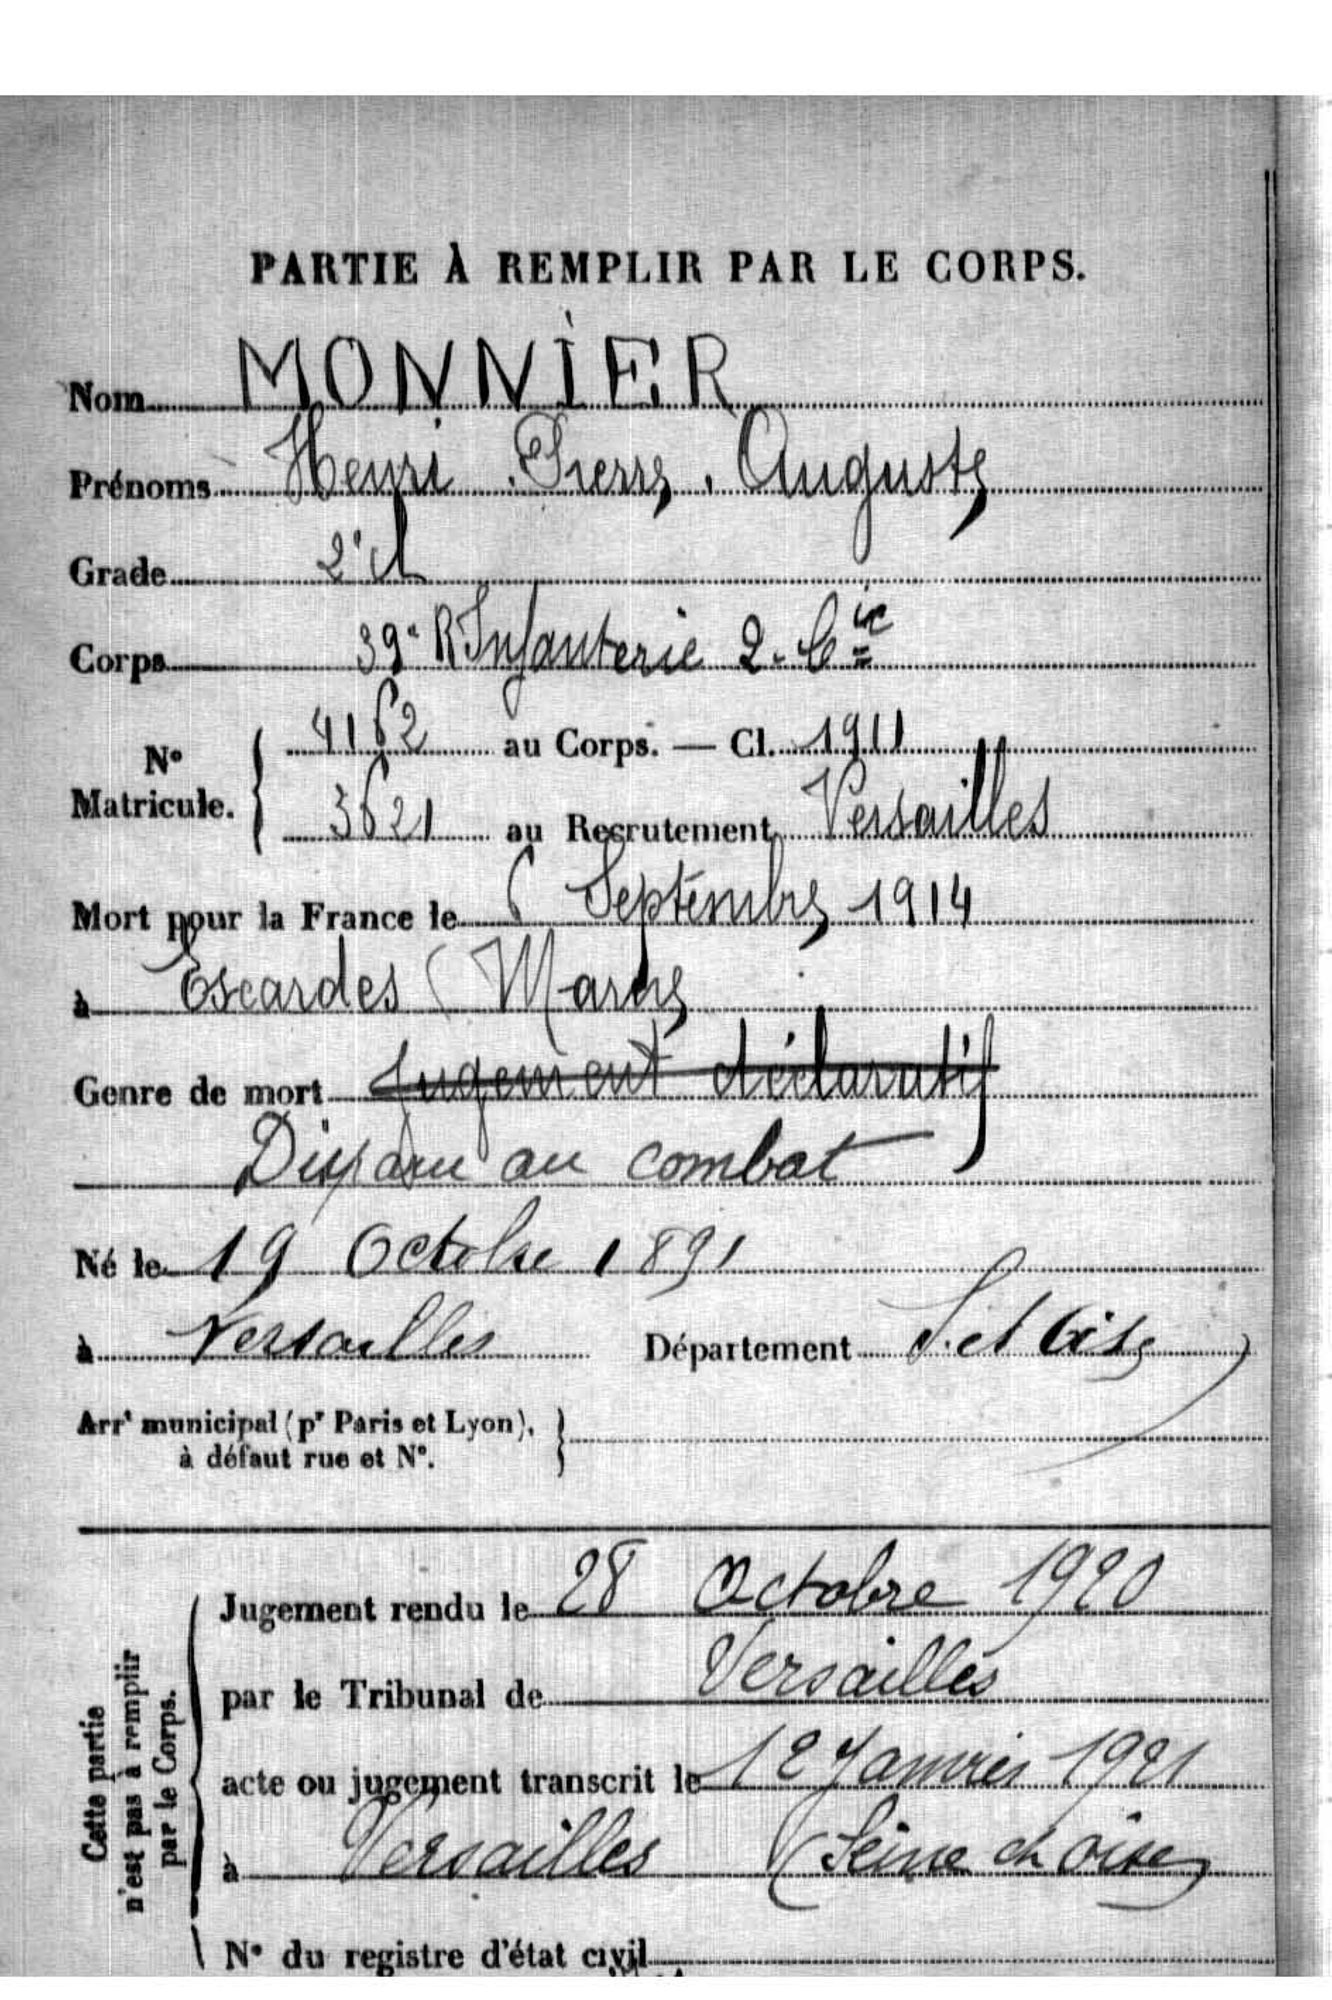 PARTIE À REMPLIR PAR LE CORPS.
Nom MONNIER
Prénoms Henri Pierre Auguste
Grade 2e cl
Corps 39e R Infanterie 2e Cie
No Matricule. { 4162 au Corps. — Cl. 1911
3621 au Recrutement Versailles
Mort pour la France le 6 Septembre 1914
à Escardes (Marne
Genre de mort Jugement déclaratif
Disparu au combat
Né le 19 Octobre 1891
à Versailles Département S. et Oise
Arrt municipal (pr Paris et Lyon), à défaut rue et No. }
Cette partie n'est pas à remplir par le Corps.
Jugement rendu le 28 Octobre 1920
par le Tribunal de Versailles
acte ou jugement transcrit le 12 Janvier 1921
à Versailles (Seine et Oise)
No du registre d'état civil